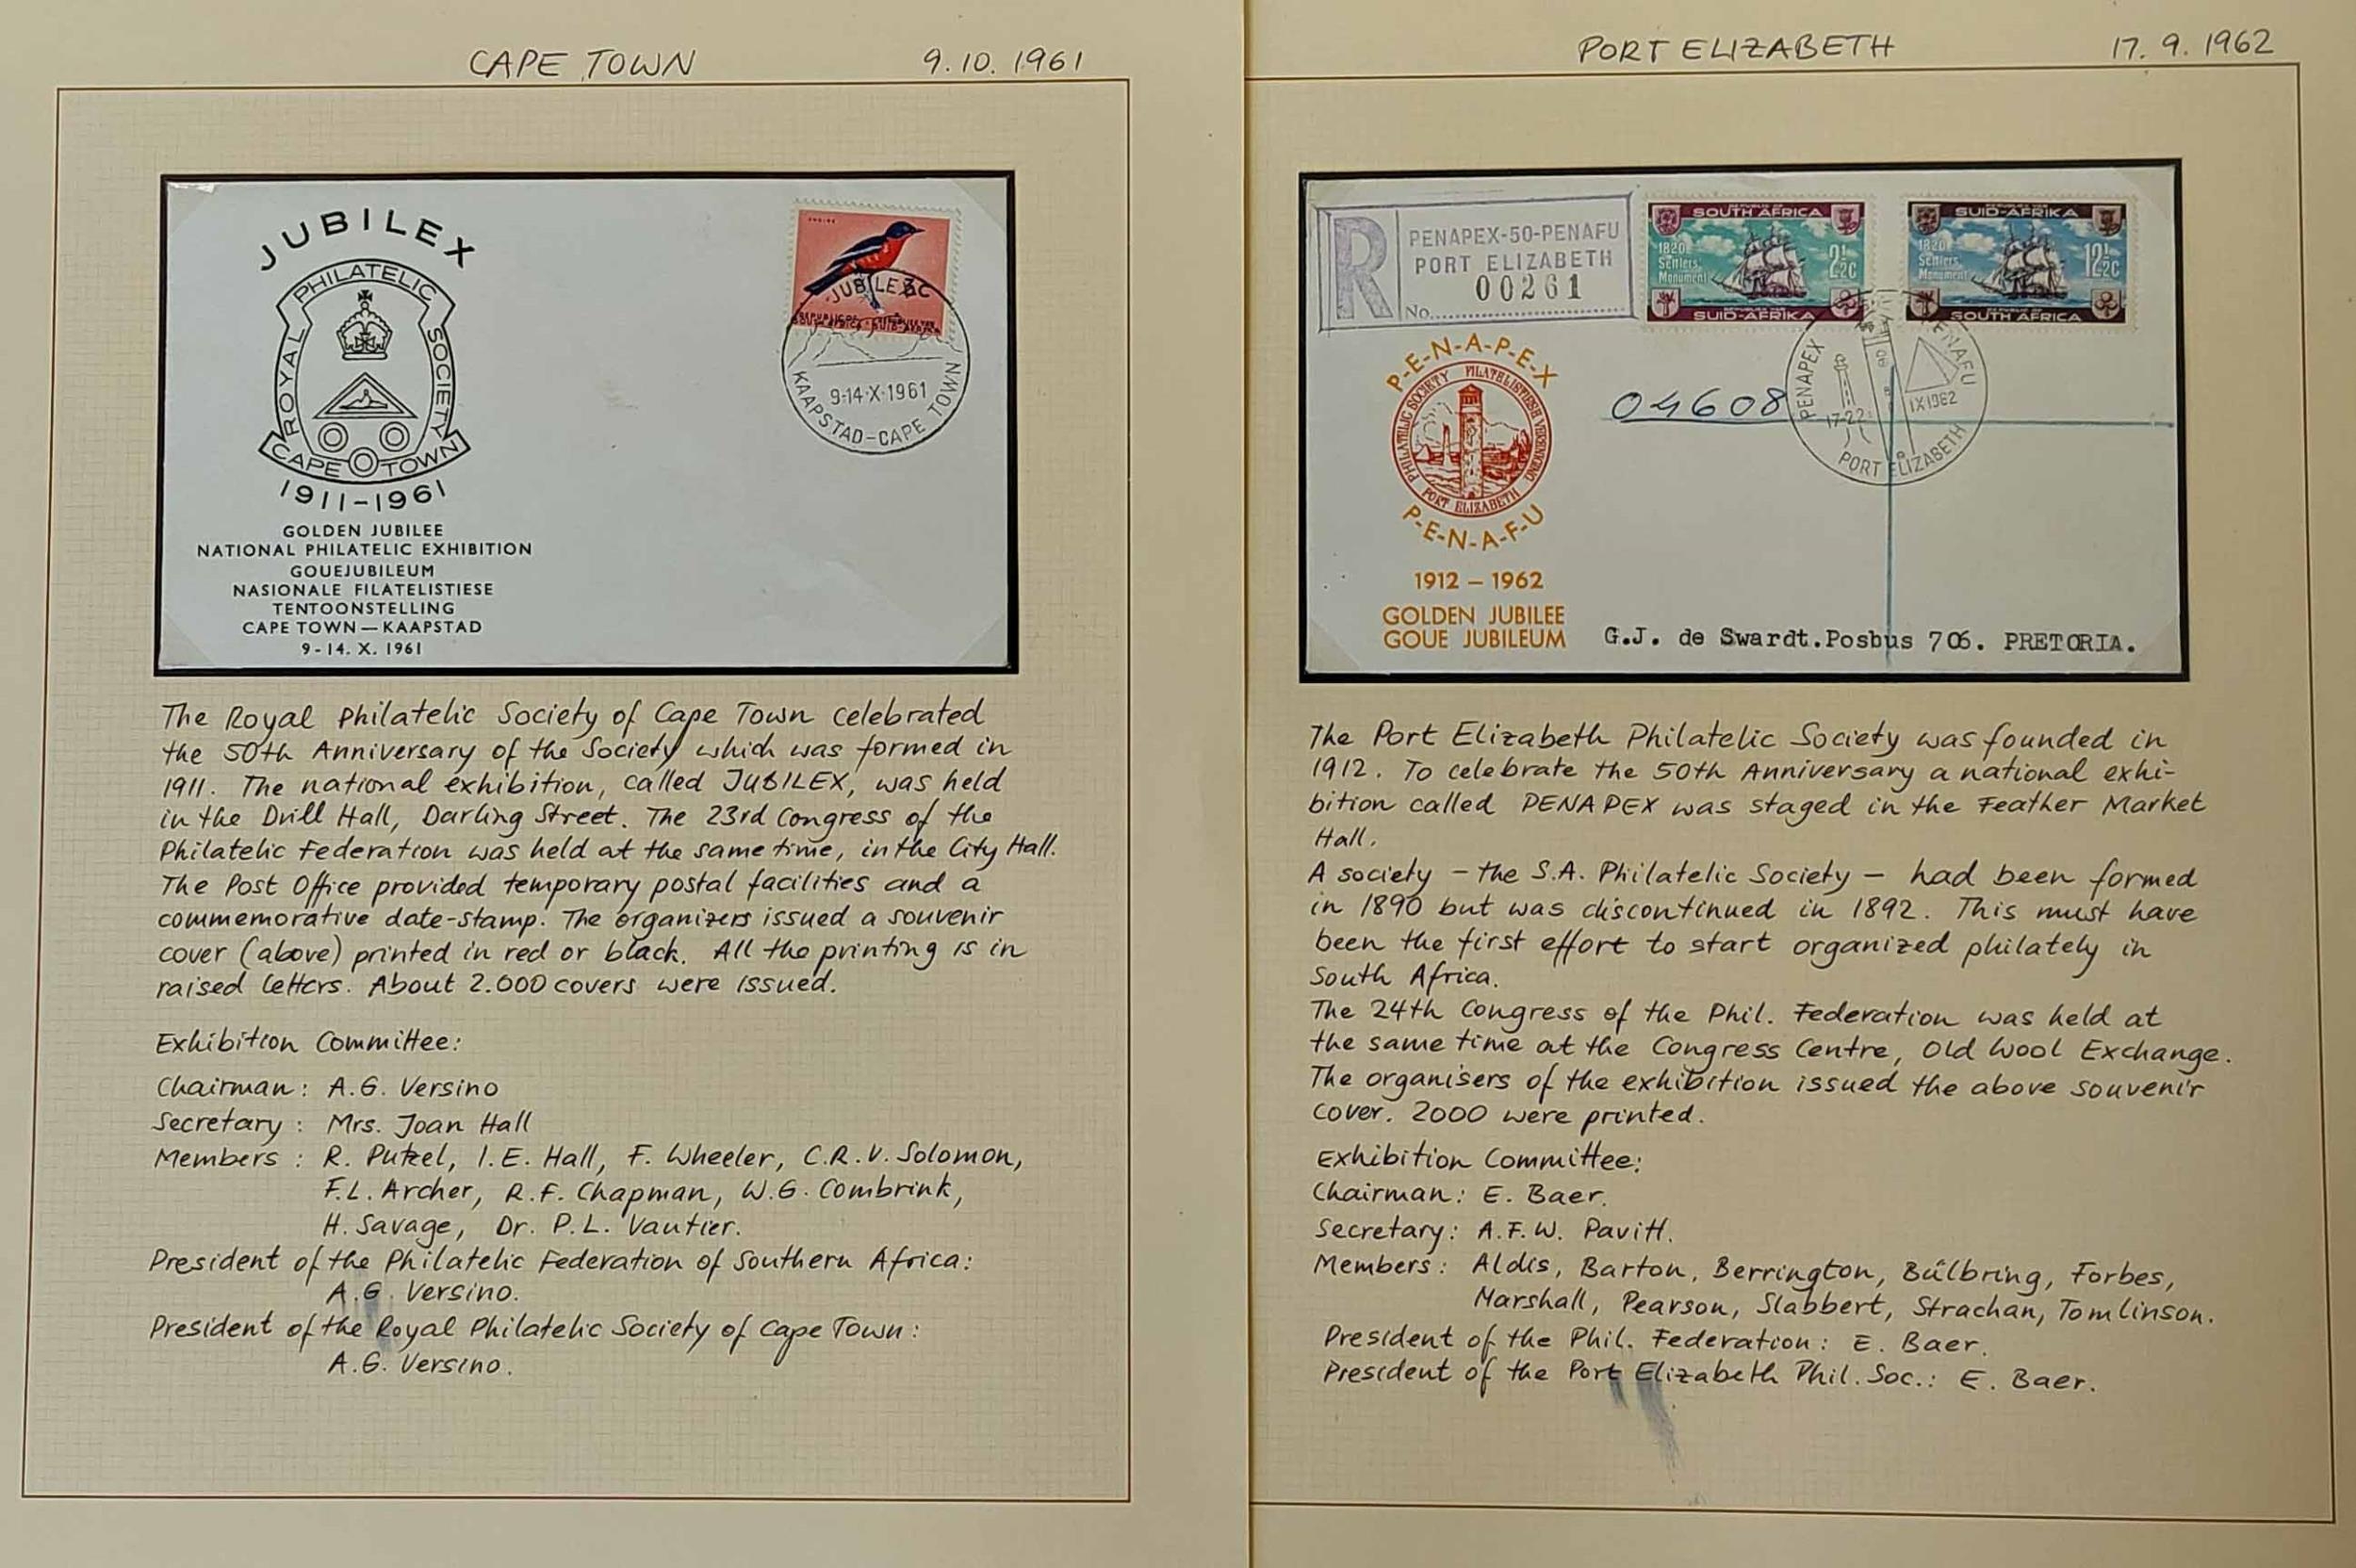 CAPE TOWN 9.10.1961
JUBILEX
ROYAL PHILATELIC SOCIETY
CAPE TOWN
1911-1961
GOLDEN JUBILEE
NATIONAL PHILATELIC EXHIBITION
GOUEJUBILEUM
NASIONALE FILATELISTIESE
TENTOONSTELLING
CAPE TOWN — KAAPSTAD
9-14. X. 1961
JUBILEX
9-14·X·1961
KAAPSTAD-CAPE TOWN
The Royal Philatelic Society of Cape Town celebrated
the 50th Anniversary of the Society which was formed in
1911. The national exhibition, called JUBILEX, was held
in the Drill Hall, Darling Street. The 23rd Congress of the
Philatelic Federation was held at the same time, in the City Hall.
The Post Office provided temporary postal facilities and a
commemorative date-stamp. The organizers issued a souvenir
cover (above) printed in red or black. All the printing is in
raised letters. About 2.000 covers were issued.
Exhibition Committee:
Chairman: A.G. Versino
Secretary: Mrs. Joan Hall
Members: R. Putzel, I.E. Hall, F. Wheeler, C.R.V. Solomon,
F.L. Archer, R.F. Chapman, W.G. Combrink,
H. Savage, Dr. P.L. Vautier.
President of the Philatelic Federation of Southern Africa:
A.G. Versino.
President of the Royal Philatelic Society of Cape Town:
A.G. Versino.
PORT ELIZABETH 17.9.1962
R
PENAPEX-50-PENAFU
PORT ELIZABETH
00261
No.
REPUBLIC OF
SOUTH AFRICA
1820
Settlers'
Monument
2½c
SUID-AFRIKA
SUID-AFRIKA
1820
Settlers'
Monument
12½c
REPUBLIC OF
SOUTH AFRICA
P-E-N-A-P-E-X
PHILATELIC SOCIETY FILATELISTIESE VERENIGING
PORT ELIZABETH
P-E-N-A-F-U
1912 – 1962
GOLDEN JUBILEE
GOUE JUBILEUM
04608
PENAPEX PENAFU
17-22 IX1962
PORT ELIZABETH
G.J. de Swardt.Posbus 706. PRETORIA.
The Port Elizabeth Philatelic Society was founded in
1912. To celebrate the 50th Anniversary a national exhi-
bition called PENAPEX was staged in the Feather Market
Hall.
A society – the S.A. Philatelic Society – had been formed
in 1890 but was discontinued in 1892. This must have
been the first effort to start organized philately in
South Africa.
The 24th Congress of the Phil. Federation was held at
the same time at the Congress Centre, Old Wool Exchange.
The organisers of the exhibition issued the above souvenir
cover. 2000 were printed.
Exhibition Committee:
Chairman: E. Baer.
Secretary: A.F.W. Pavitt.
Members: Aldis, Barton, Berrington, Bülbring, Forbes,
Marshall, Pearson, Slabbert, Strachan, Tomlinson.
President of the Phil. Federation: E. Baer.
President of the Port Elizabeth Phil. Soc.: E. Baer.